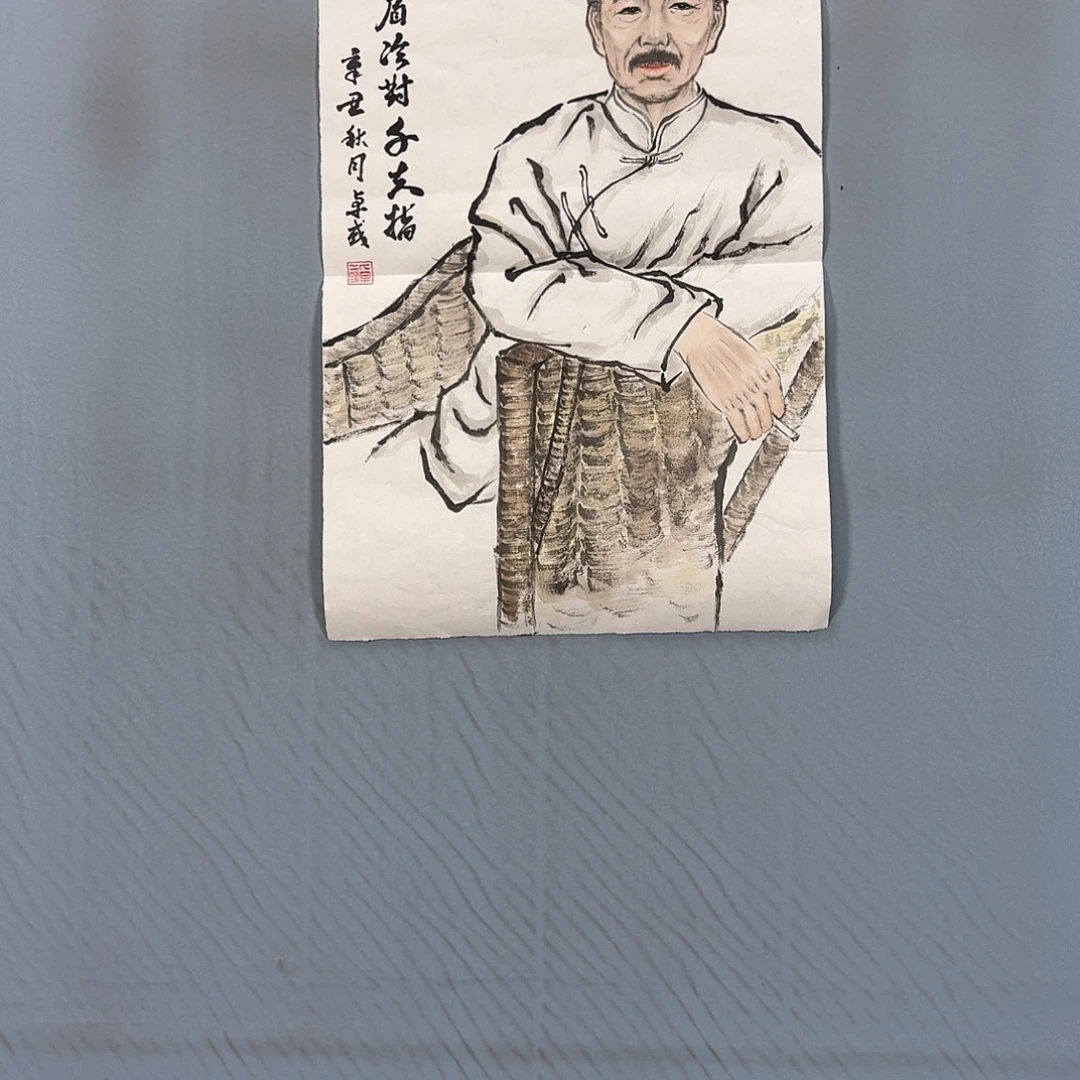 眉冷對千夫指
辛丑秋月卓彧